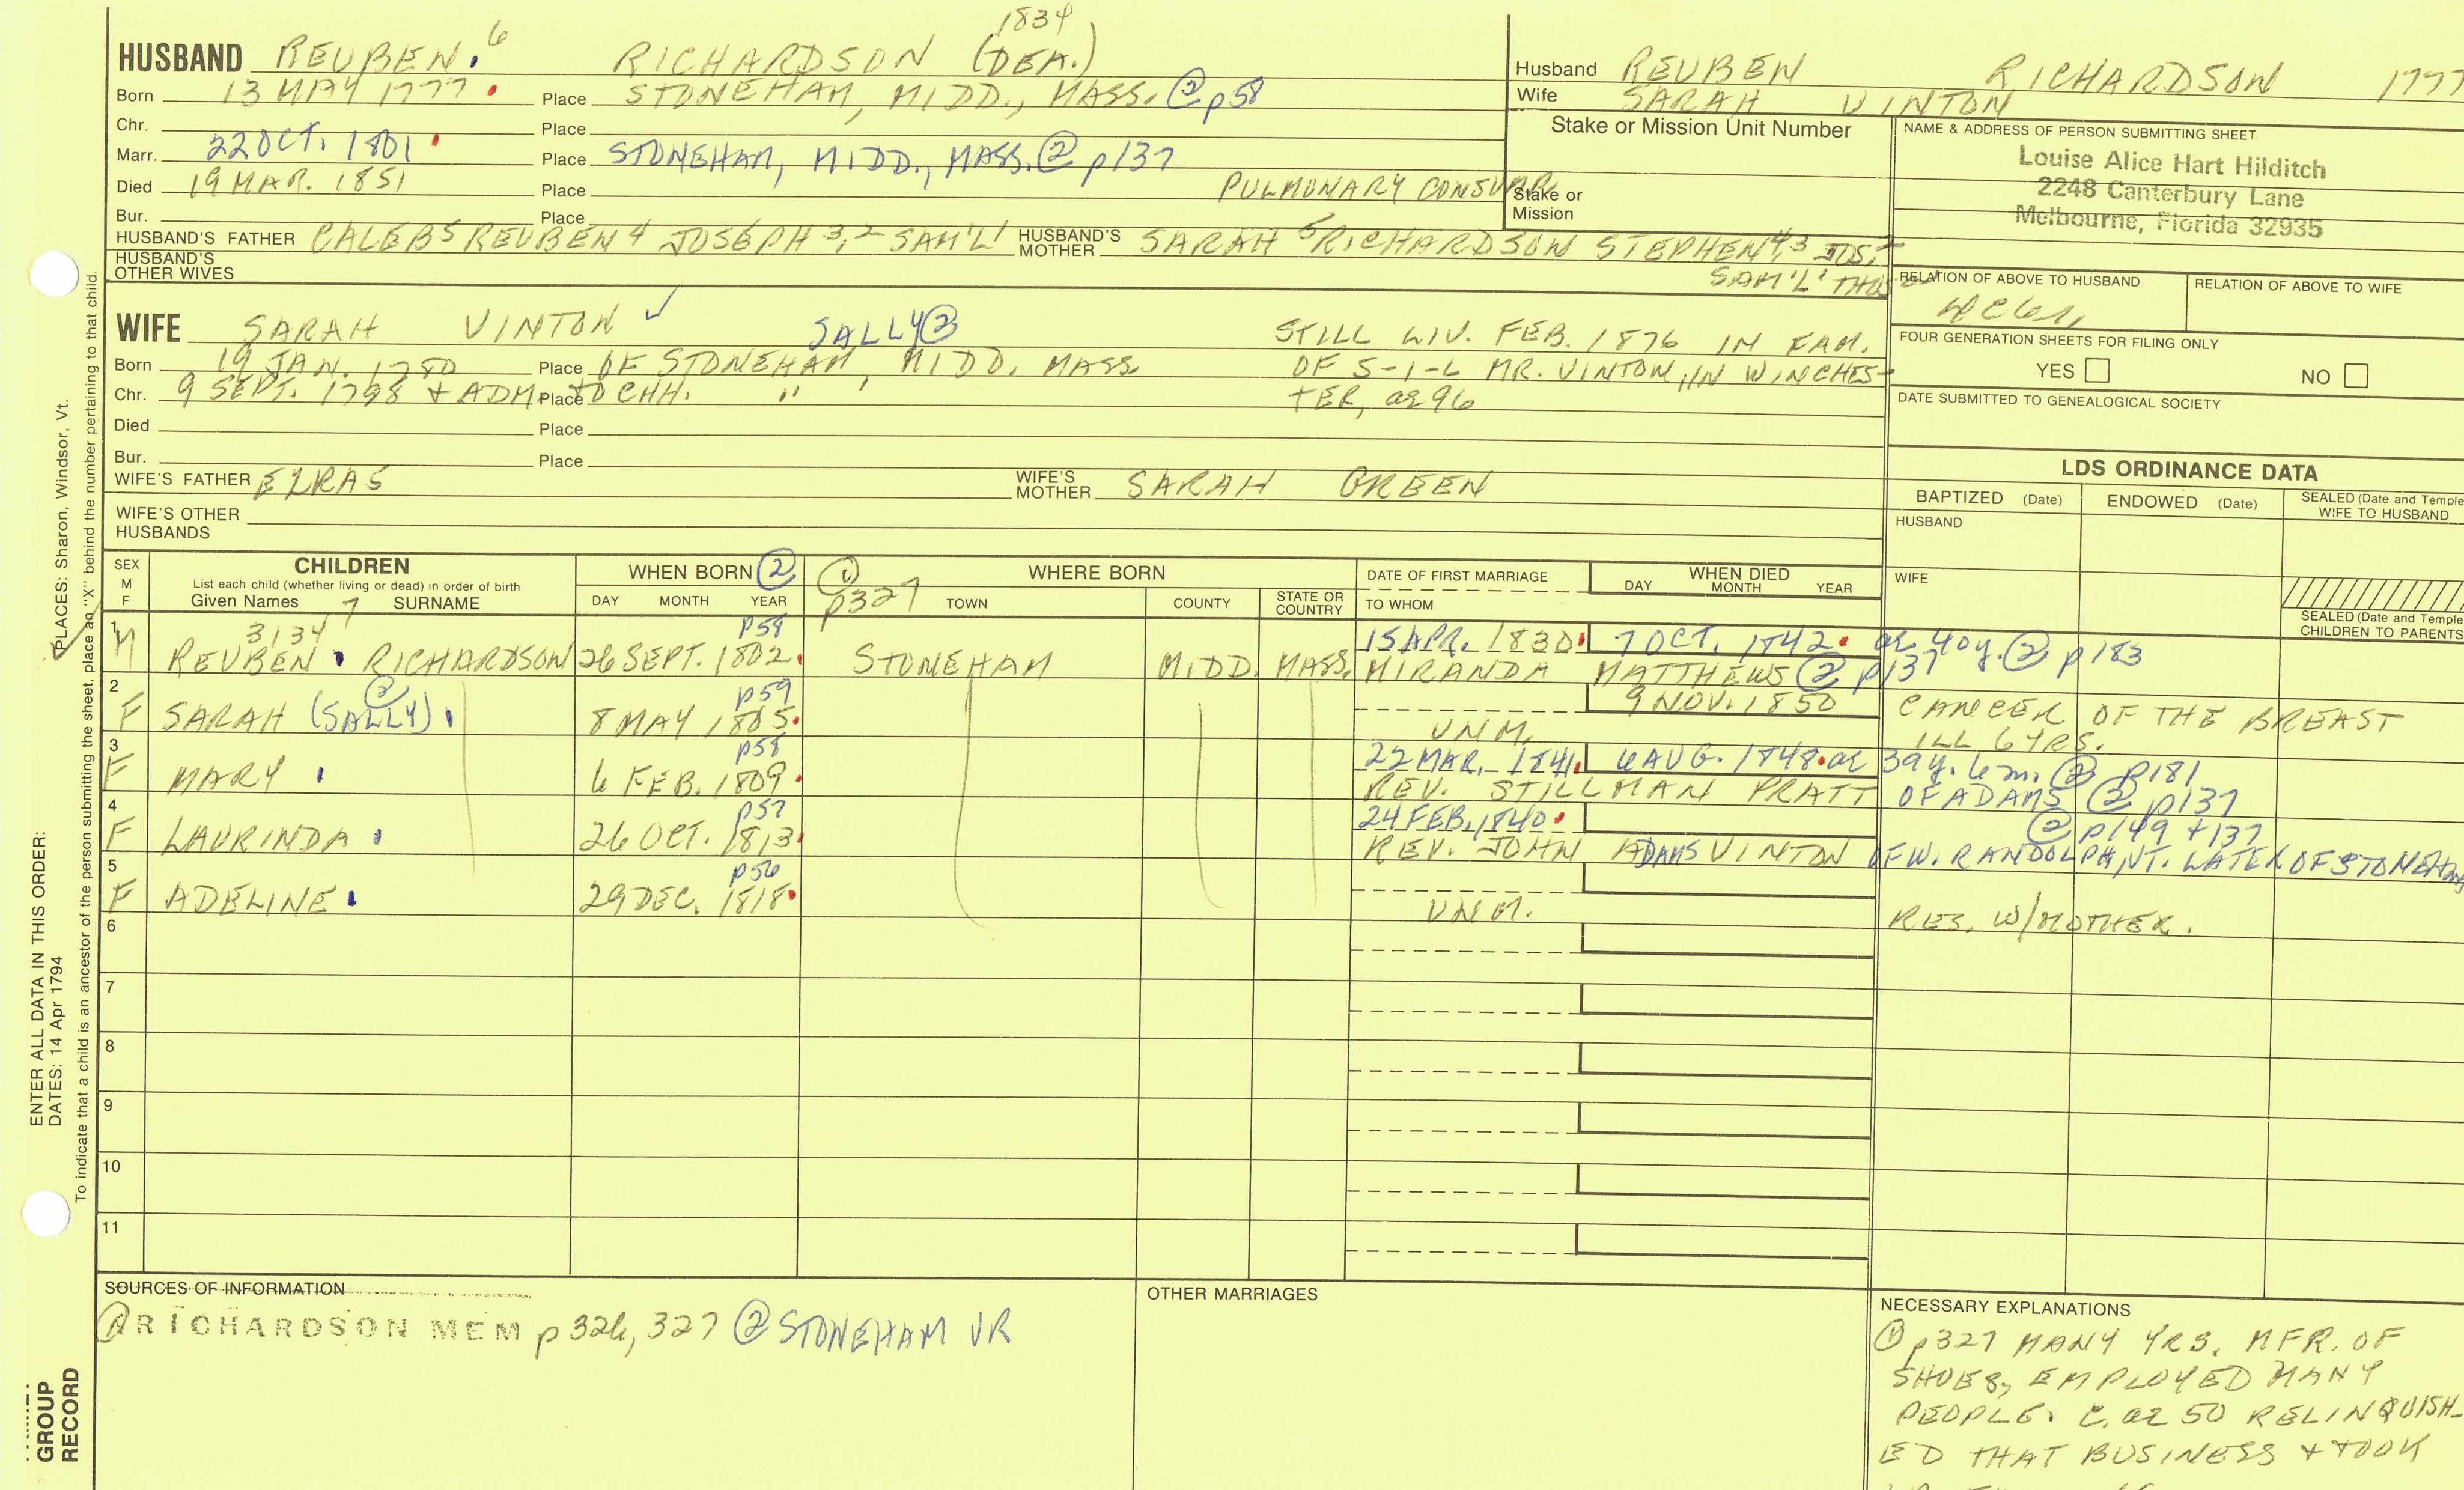 1834
HUSBAND REUBEN. 6 RICHARDSON (DEA.)
Born 13 MAY 1777. Place STONEHAM, MIDD., MASS. ② p58
Chr. Place
Marr. 22 OCT. 1801. Place STONEHAM, MIDD., MASS. ② p137
Died 19 MAR. 1851 Place PULMONARY CONSUMP.
Bur. Place
HUSBAND'S FATHER CALEB5 REUBEN4 JOSEPH3,2 SAM'L1 HUSBAND'S MOTHER SARAH 5 RICHARDSON STEPHEN4,3 JOS.2
SAM'L1
HUSBAND'S OTHER WIVES
Husband REUBEN RICHARDSON 1777
Wife SARAH VINTON
Stake or Mission Unit Number
Stake or Mission
NAME & ADDRESS OF PERSON SUBMITTING SHEET
Louise Alice Hart Hilditch
2248 Canterbury Lane
Melbourne, Florida 32935
RELATION OF ABOVE TO HUSBAND RELATION OF ABOVE TO WIFE
FOUR GENERATION SHEETS FOR FILING ONLY
YES NO
DATE SUBMITTED TO GENEALOGICAL SOCIETY
WIFE SARAH VINTON ✓ SALLY② STILL LIV. FEB. 1876 IN FAM.
Born 19 JAN. 1780 Place OF STONEHAM, MIDD. MASS. OF S-I-L MR. VINTON, IN WINCHES-
Chr. 9 SEPT. 1798 + ADM. Place TO CHH. " TER, ae 96
Died Place
Bur. Place
WIFE'S FATHER EZRA5 WIFE'S MOTHER SARAH GREEN
WIFE'S OTHER HUSBANDS
LDS ORDINANCE DATA
BAPTIZED (Date) ENDOWED (Date) SEALED (Date and Temple
WIFE TO HUSBAND
HUSBAND
WIFE
SEALED (Date and Temple
CHILDREN TO PARENTS
SEX M F CHILDREN WHEN BORN ② ① p327 WHERE BORN DATE OF FIRST MARRIAGE WHEN DIED
List each child (whether living or dead) in order of birth
Given Names 7 SURNAME DAY MONTH YEAR TOWN COUNTY STATE OR COUNTRY TO WHOM DAY MONTH YEAR
1 3134 p58 15 APR. 1830. 7 OCT. 1842. ae 40y. ② p183
M REUBEN . RICHARDSON 26 SEPT. 1802. STONEHAM MIDD. MASS. MIRANDA MATTHEWS ② p137
2 ② p59 9 NOV. 1850 CANCER OF THE BREAST
F SARAH (SALLY) . 8 MAY 1805. UNM. ILL 6 YRS.
3 p58 22 MAR. 1841. 6 AUG. 1848. ae 39y. 6m. ② p181
F MARY . 6 FEB. 1809. REV. STILLMAN PRATT OF ADAMS ② p137
4 p57 24 FEB. 1840. ② p149 + 137
F LAURINDA . 26 OCT. 1813. REV. JOHN ADAMS VINTON OF W. RANDOLPH, VT. LATER OF STONEHAM
5 p56
F ADELINE . 29 DEC. 1818. UNM. RES. W/MOTHER.
6
7
8
9
10
11
SOURCES OF INFORMATION
① RICHARDSON MEM p326, 327 ② STONEHAM VR
OTHER MARRIAGES
NECESSARY EXPLANATIONS
① p327 MANY YRS. MFR. OF
SHOES, EMPLOYED MANY
PEOPLE. C. ae 50 RELINQUISH-
ED THAT BUSINESS + TOOK
PLACES: Sharon, Windsor, Vt.
ENTER ALL DATA IN THIS ORDER:
DATES: 14 Apr 1794
To indicate that a child is an ancestor of the person submitting the sheet, place an "X" behind the number pertaining to that child.
GROUP
RECORD